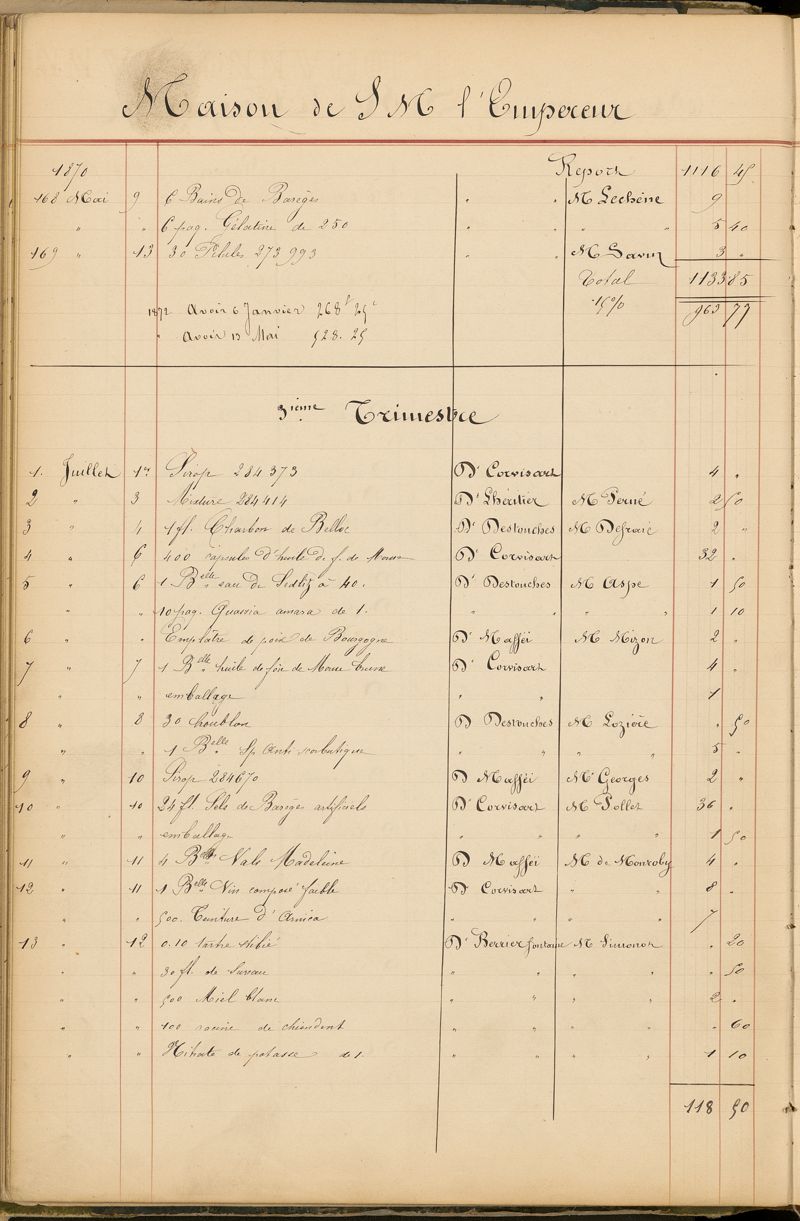 Maison de S M l'Empereur
1870 Report 1116 45
168 Mai 9 6 Bains de Barèges " " M Lechêne 9
" " 6 paq. Gélatine de 250 " " " " 5 40
169 " 13 30 Pilules 273993 " " M Savin 3 "
Total 1133 85
15% 963 77
1872 Avoir 6 Janvier 268f 25c
" Avoir 13 Mai 528. 25
3ième Trimestre
1. Juillet 1er Sirop 284373 Dr Corvisart 4 "
2 " 3 Mixture 284414 Dr Lhéritier M Perné 2 50
3 " 4 1 fl. Charbon de Belloc Dr Destouches M Defraic 2 "
4 " 6 400 capsules d'huile de f. de Morue Dr Corvisart 32 "
5 " 6 1 Belle eau de Sedlitz à 40. Dr Destouches M Aspe 1 50
" " 10 paq. Quassia amara de 1. " " " " 1 10
6 " " Emplâtre de poix de Bourgogne Dr Mafféi M Mizon 2 "
7 " 7 1 Belle huile de foie de Morue Dr Corvisart 4 "
" " emballage " " 1
8 " 8 30 houblon D Destouches M Lozière " 50
" " 1 Belle Sp anti scorbutique " " " " 5 "
9 " 10 Sirop 284670 D Mafféi M Georges 2 "
10 " 10 24 fl. Sels de Barèges artificiels D Corvisart M Pollet 36 "
" " emballage " " " " 1 50
11 " 11 4 Belles Vals Madeleine D Mafféi M de Monroby 4 "
12 " 11 1 Belle Vin composé faible D Corvisart " " 8 "
" " 500. Teinture d'Arnica " " " " 7
13 " 12 0.10 tartre stibié Dr Berrier fontaine M Simonot " 20
" " 30 fl. de Sureau " " " " " 50
" " 500 Miel blanc " " " " 2 "
" " 100 racine de chiendent " " " " " 60
" " Nitrate de potasse de 1. " " " " 1 10
118 50